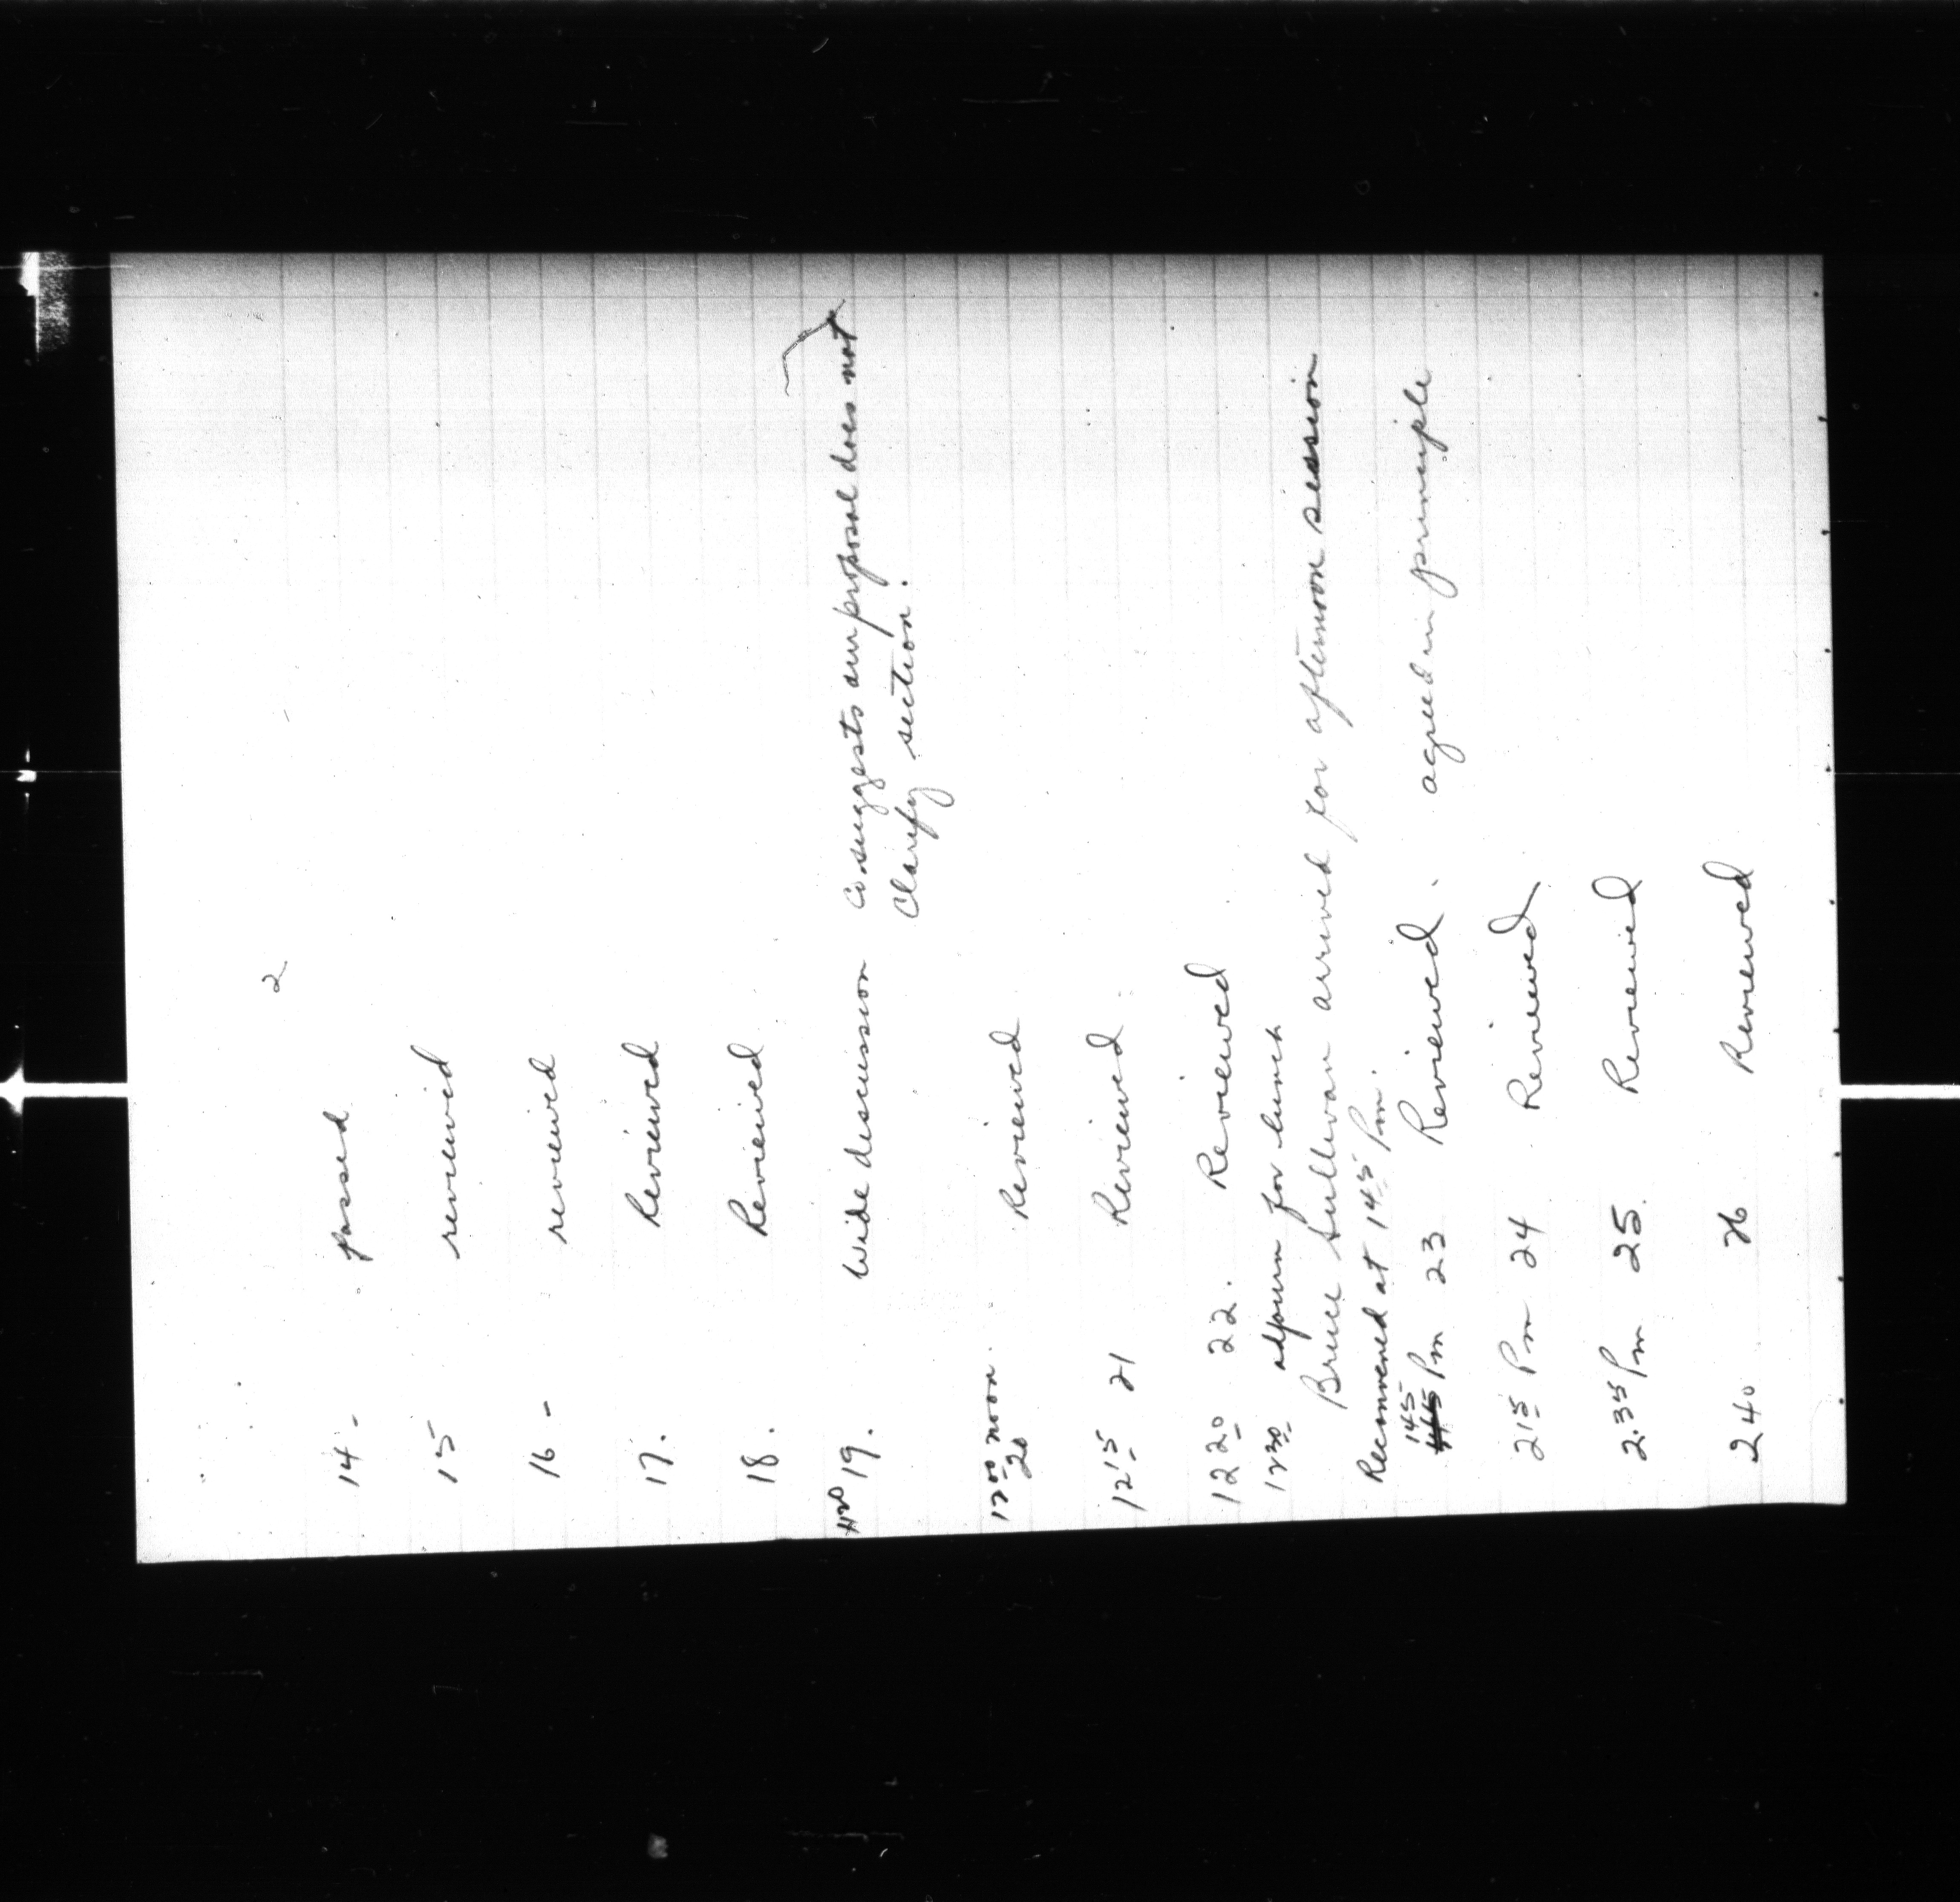 2
14 - passed
15 reviewed
16 - reviewed
17. Reviewed
18. Reviewed
19. Wide discussion Co suggests our proposal does not
Clarify section.
12 00 noon.
20 Reviewed
12 15 21 Reviewed
12 20 22. Reviewed
12 30 adjourn for lunch
Bruce Sullivan arrived for afternoon session
Reconvened at 1 45 Pm.
1 45 Pm 23 Reviewed. agreed in principle
2 15 Pm 24 Reviewed
2.35 Pm 25. Reviewed
2 40 26 Reviewed